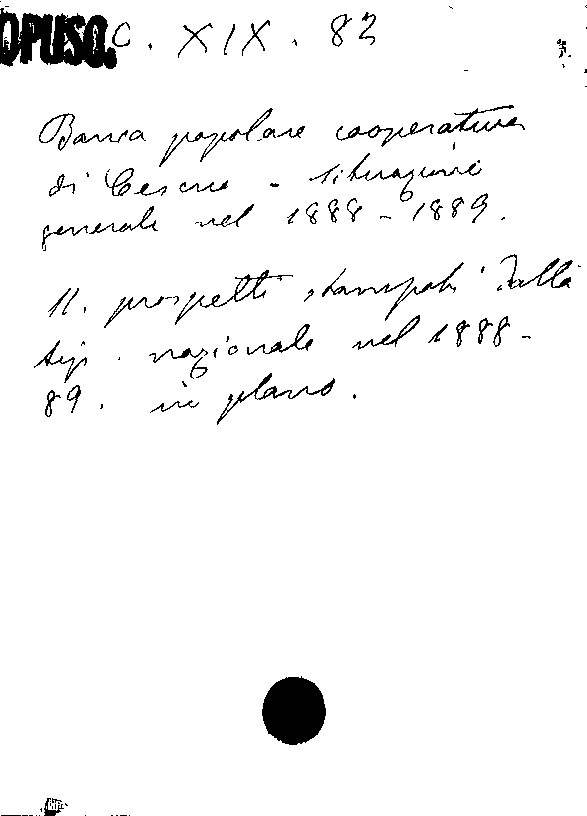 OPUSC. C. XIX. 82
Banca popolare cooperativa
di Cesena - Situazione
generale nel 1888-1889.
11. prospetti stampati dalla
tip. nazionale nel 1888-
89. in plano.